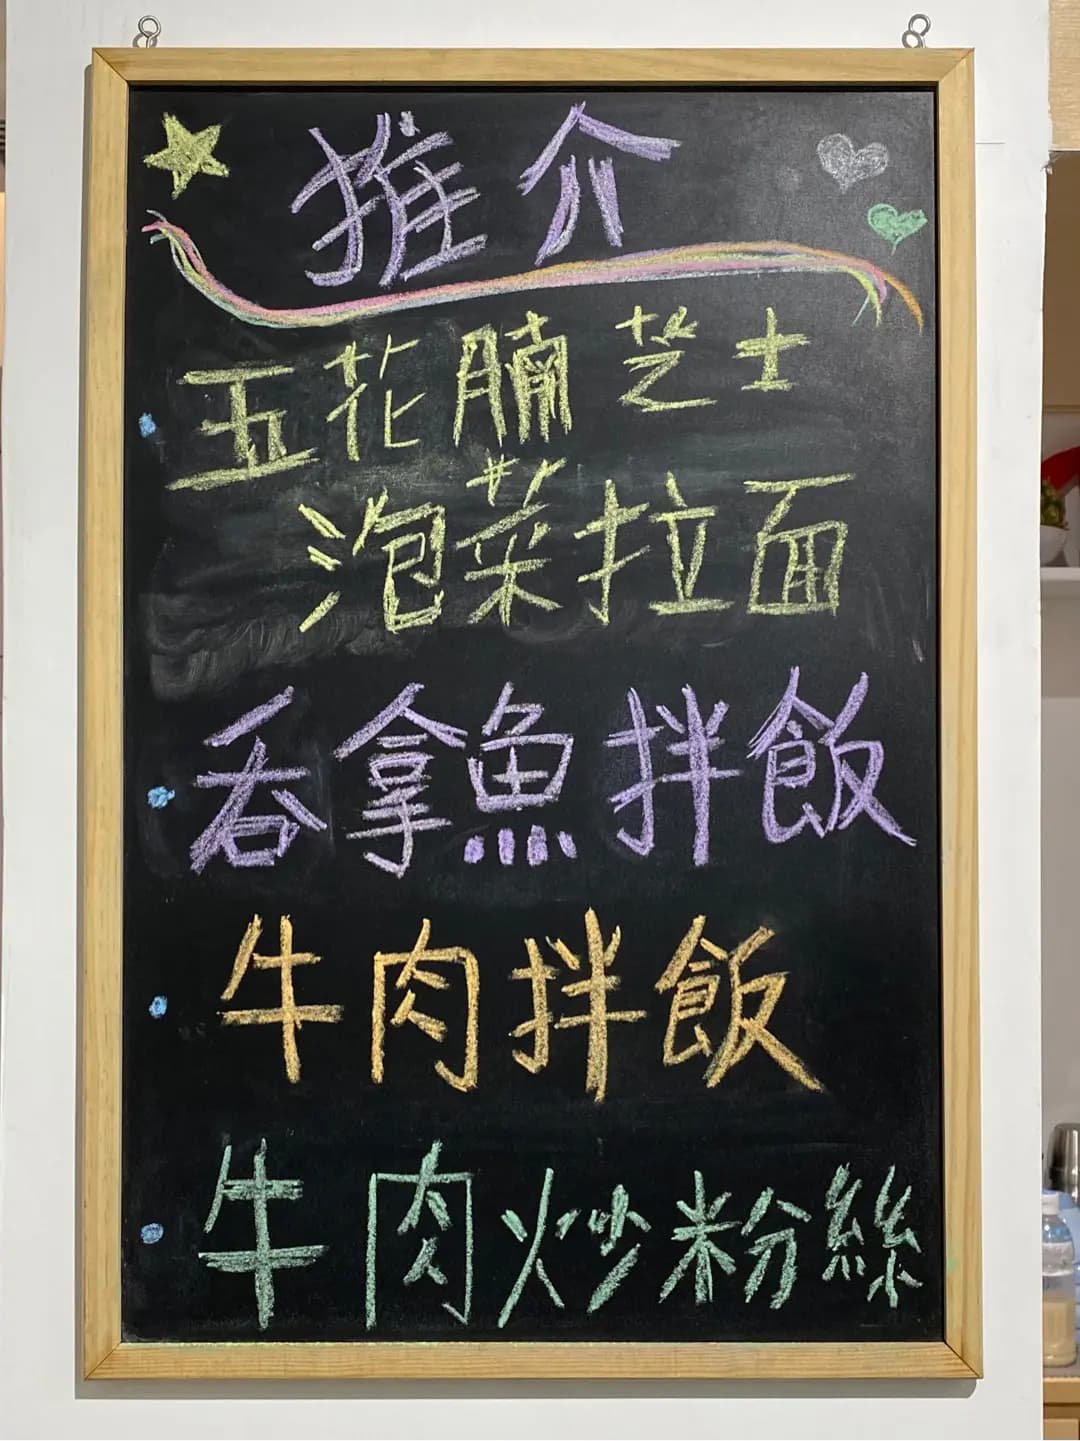 推介
五花腩芝士
泡菜拉面
吞拿魚拌飯
牛肉拌飯
牛肉炒粉絲